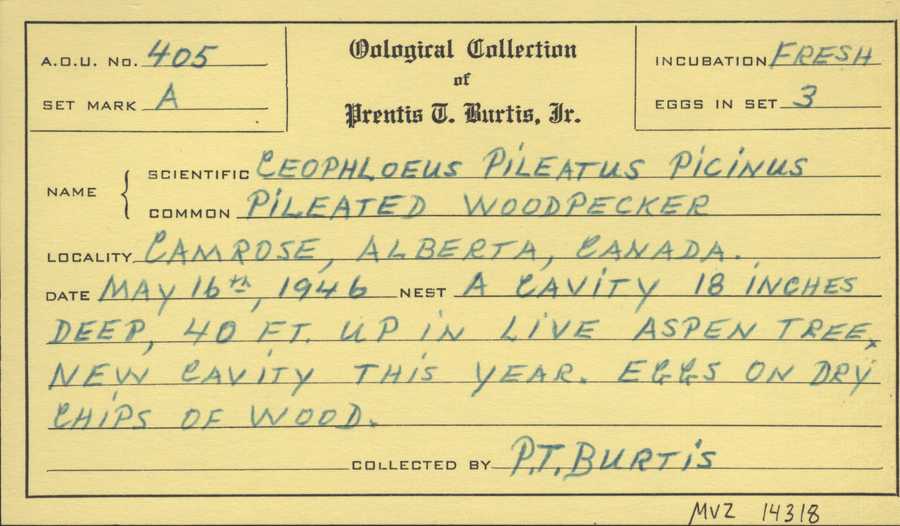 A.O.U. No. 405
SET MARK A
Oological Collection
of
Prentis T. Burtis, Jr.
INCUBATION FRESH
EGGS IN SET 3
NAME { SCIENTIFIC CEOPHLOEUS PILEATUS PICINUS
COMMON PILEATED WOODPECKER
LOCALITY CAMROSE, ALBERTA, CANADA.
DATE MAY 16th, 1946 NEST A CAVITY 18 INCHES
DEEP, 40 FT. UP IN LIVE ASPEN TREE.
NEW CAVITY THIS YEAR. EGGS ON DRY
CHIPS OF WOOD.
COLLECTED BY P.T. BURTIS
MVZ 14318